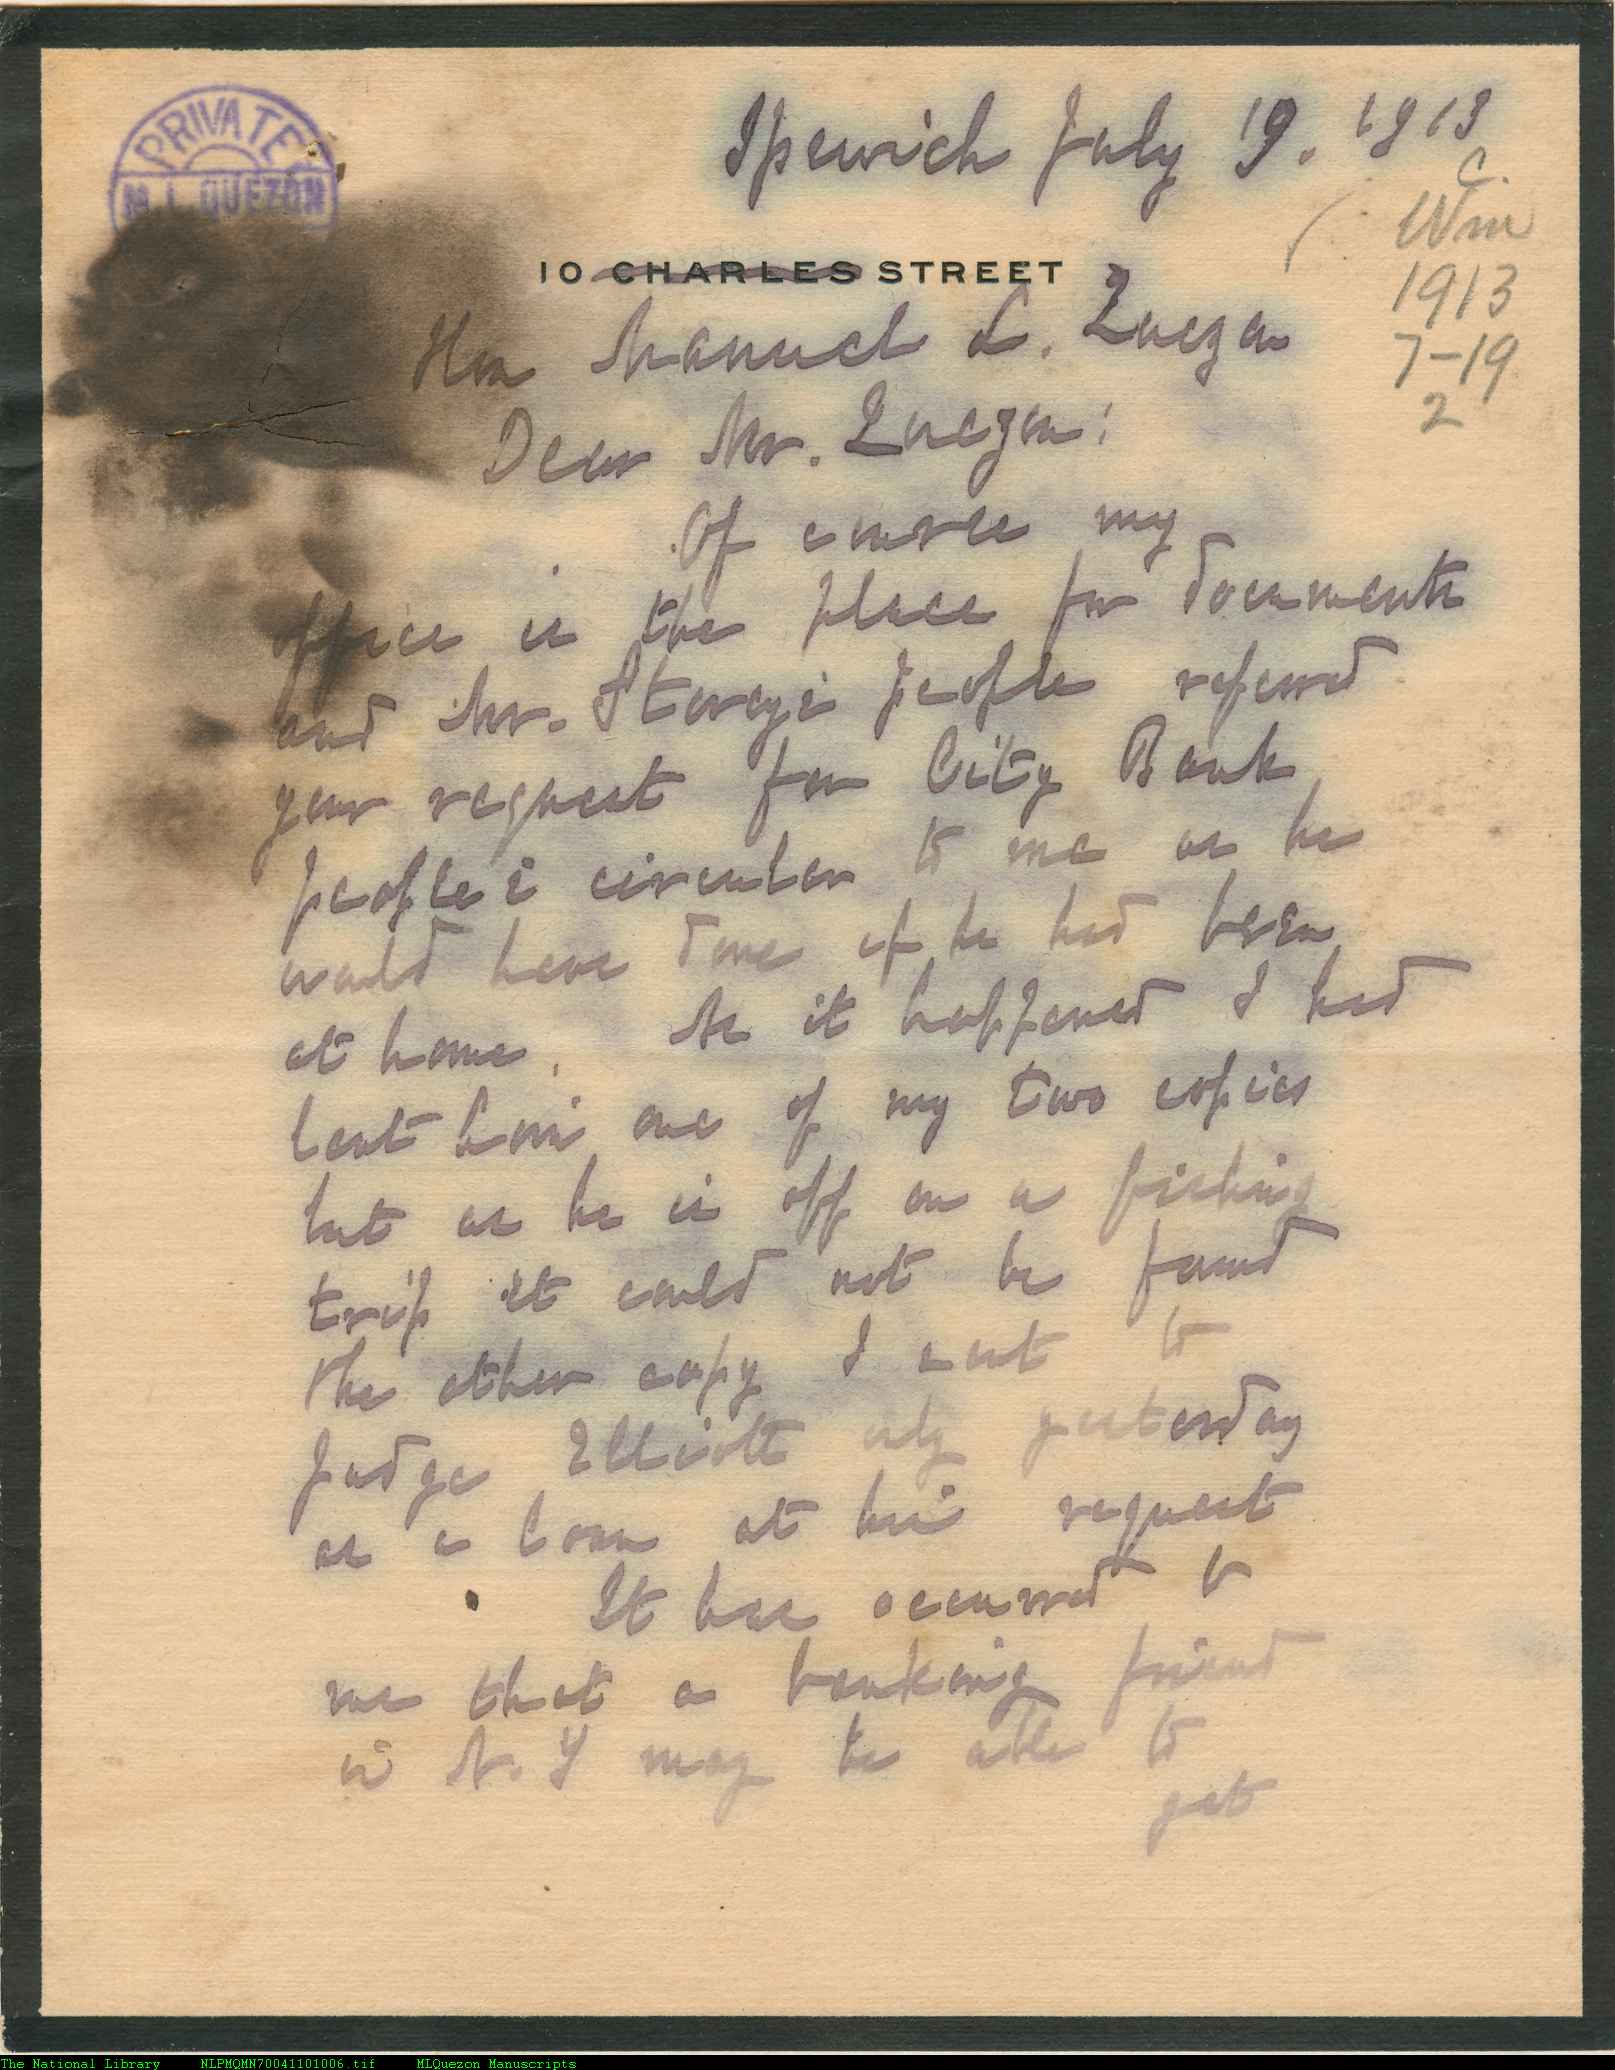 PRIVATE
M. L. QUEZON
Ipswich July 19. 1913
C.
Wm
1913
7-19
2
10 CHARLES STREET
Hon Manuel L. Quezon
Dear Mr. Quezon:
Of course my
office is the place for documents
and Mr. Storey's people referred
your request for City Bank
people's circular to me as he
would have done if he had been
at home. As it happened I had
lent him one of my two copies
but as he is off on a fishing
trip it could not be found
The other copy I sent to
Judge Elliott only yesterday
as a loan at his request
It has occurred to
me that a banking friend
in N. Y may be able to
get
The National Library NLPMQMN70041101006.tif MLQuezon Manuscripts